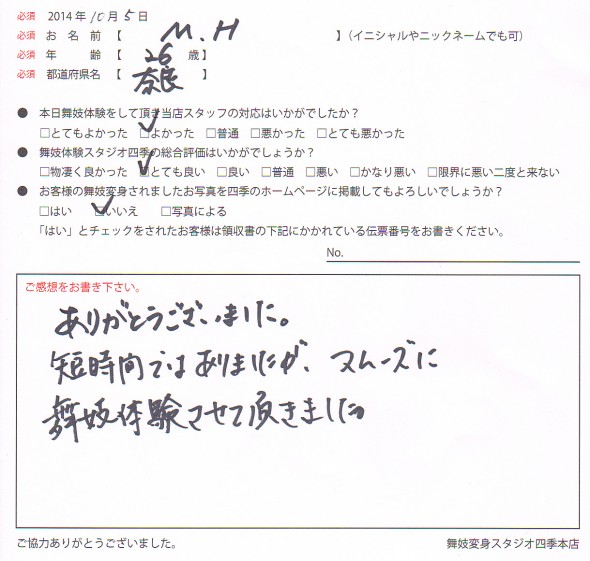 必須 2014年10月5日
必須 お名前【 M.H 】(イニシャルやニックネームでも可)
必須 年齢【 26 歳】
必須 都道府県名【 奈良 】
● 本日舞妓体験をして頂き当店スタッフの対応はいかがでしたか?
□とてもよかった □よかった □普通 □悪かった □とても悪かった
● 舞妓体験スタジオ四季の総合評価はいかがでしょうか?
□物凄く良かった □とても良い □良い □普通 □悪い □かなり悪い □限界に悪い二度と来ない
● お客様の舞妓変身されましたお写真を四季のホームページに掲載してもよろしいでしょうか?
□はい □いいえ □写真による
「はい」とチェックをされたお客様は領収書の下記にかかれている伝票番号をお書きください。
No.
ご感想をお書き下さい。
ありがとうございました。
短時間ではありましたが、スムーズに
舞妓体験させて頂きました。
ご協力ありがとうございました。
舞妓変身スタジオ四季本店